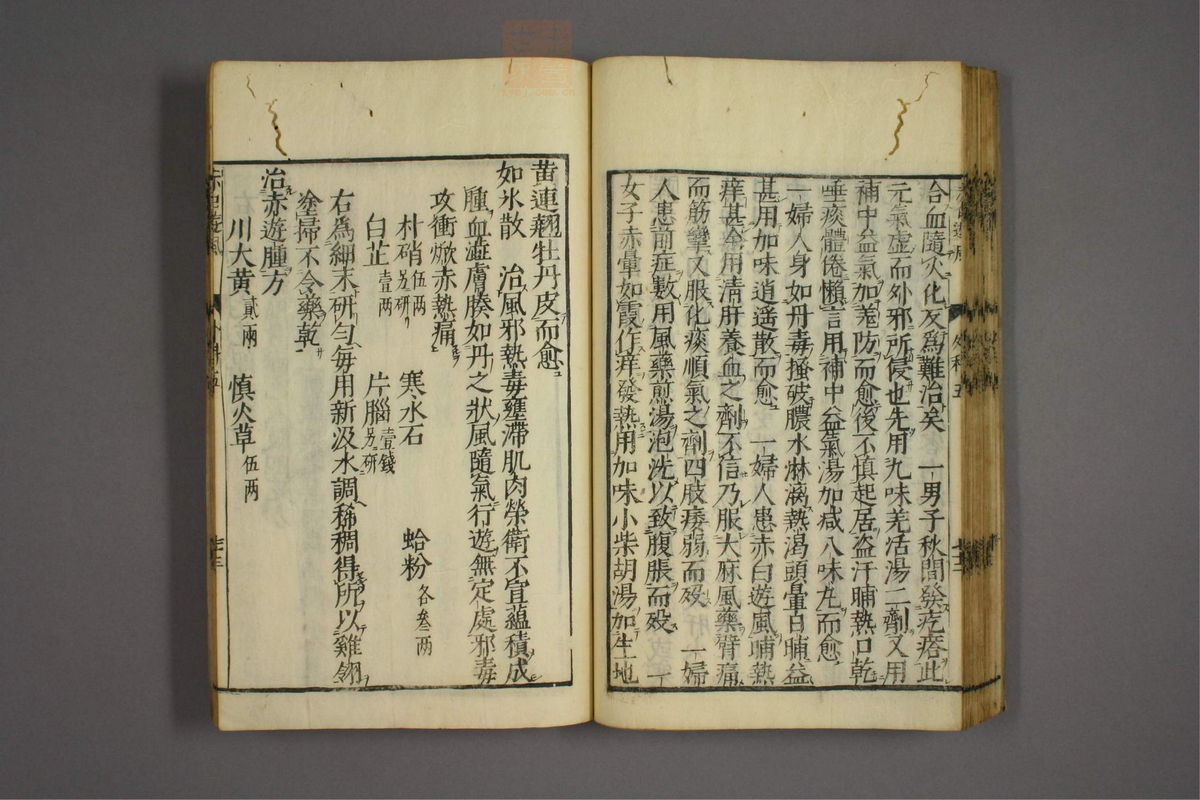 合血隨火化反爲難治矣　一男子秋間發疙瘩此
元氣虛而外邪所侵也先用九味羌活湯二劑又用
補中益氣加羌防而愈後不慎起居盗汗晡熱口乾
唾痰體倦懶言用補中益氣湯加減八味丸而愈
一婦人身如丹毒搔破膿水淋漓熱渴頭暈日晡益
甚用加味逍遥散而愈　一婦人患赤白遊風晡熱
痒甚令用清肝養血之劑不信乃服大麻風藥臂痛
而筋攣又服化痰順氣之劑四肢痿弱而殁　一婦
人患前症數用風藥煎湯泡洗以致腹脹而殁　一
女子赤暈如霞作痒發熱用加味小柴胡湯加生地
黄連翹牡丹皮而愈
如氷散　治風邪熱毒壅滯肌肉榮衛不宣蘊積成
腫血澁膚腠如丹之狀風隨氣行遊無定處邪毒
攻衝焮赤熱痛
朴硝伍两另研　寒水石　蛤粉各叁两
白芷壹两　片腦壹錢另研
右爲細末研勻每用新汲水調稀稠得所以雞翎
塗掃不令藥乾
治赤遊腫方
川大黄貳兩　慎火草伍两